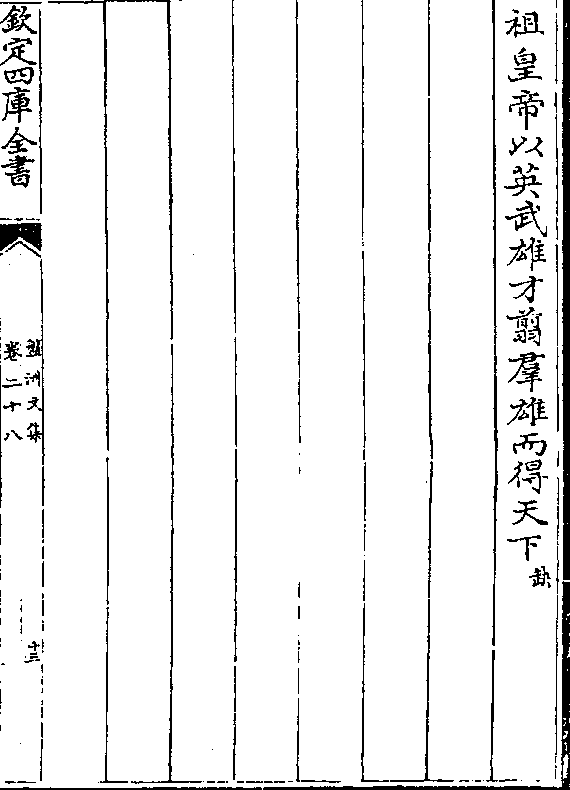 祖皇帝以英武雄才翦羣雄而得天下缺
欽定四庫全書
盤洲文集
卷二十八
十三